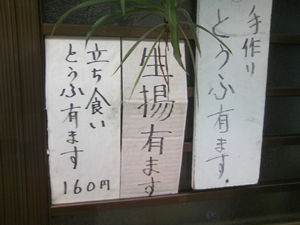 手作り
とうふ有ます.
生揚有ます
立ち食い
とうふ有ます
160円